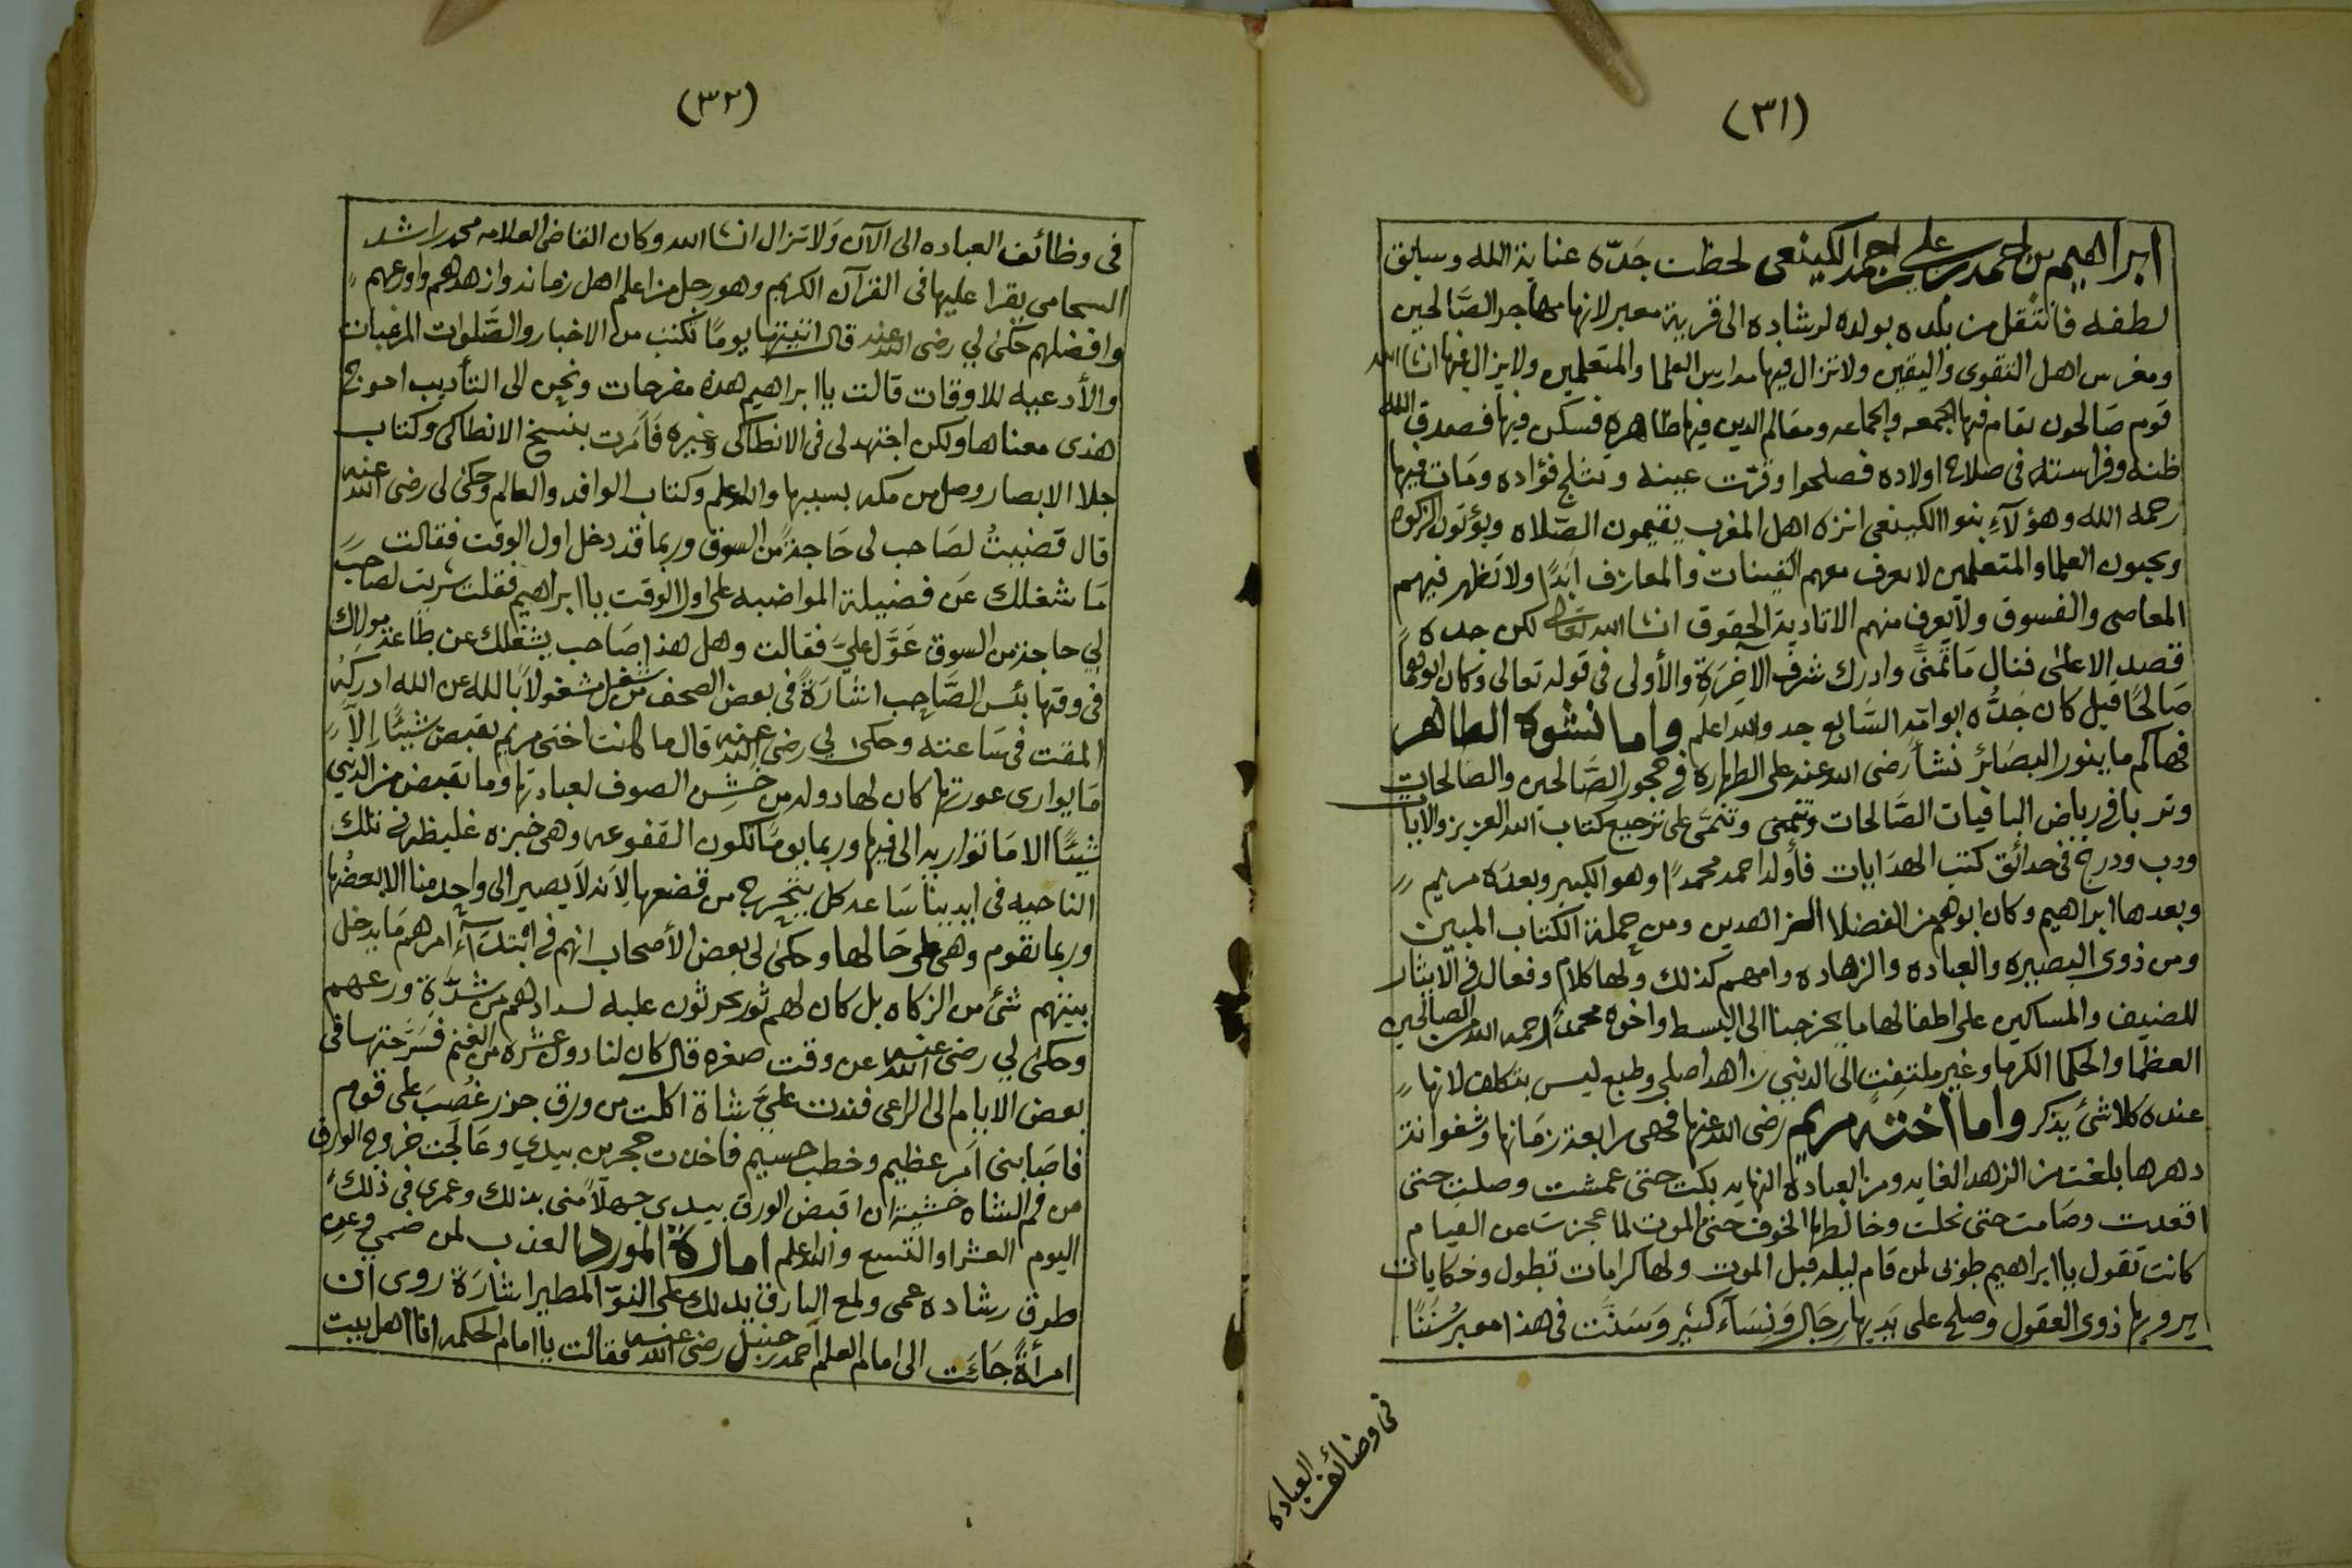 (٣١)
ابراهيم بن احمد بن علي بن احمد الكينعي لحظت جَدّه عناية الله وسابق
لطفه فانتقل من بلده بولده لرشاده الى قرية معبر لانها مهاجر الصَّالحين
ومغرس اهل التقوى واليقين ولا تزال فيها مدارس العلما والمتعلمين ولا يزال فيها انشا الله
قوم صَالحون تقام فيها الجمعه والجماعه ومعَالم الدين فيها ظاهرة فسكن فيها فصدق الله
ظنه وفراسته فى صلاح اولاده فصلحوا وقرّت عينه وثلج فؤاده ومَات فيها
رحمه الله وهؤلآء بنوا الكينعى انزه اهل المغرب يقيمون الصّلاه ويؤتون الزكوه
ويحبون العلما والمتعلمين لا يعرف معهم القينات والمعازف ابَدًا ولا تَظهر فيهم
المعاصى والفسوق ولا يعرف منهم الا تادية الحقوق انشا الله تعالى لكن جده
قصد الاعلىٰ فنال مَا تمنَّى وادرك شرف الآخِرَة والأولى فى قوله تعالى وكان ابوهما
صَالحًا قيل كان جَدُّه ابو امّه السَّابع جد والله اعلم واما نشوه الطاهر
فهاكم ما ينور البصَائر نشأ رضى الله عنه على الطهارة فى حجور الصَّالحين والصَالحات
وتربا فى رياض الباقيات الصَّالحات وتَمنّى وتَتَمَّى على ترجيع كتاب الله العزيز والايات
ودب ودرج فى حدائق كتب الهدَايات فأولد احمد محمدًا وهو الكبير وبعدَه مريم
وبعدها ابراهيم وكان ابوهم من الفضلا الزاهدين ومن حملة الكتاب المبين
ومن ذوى البصيره والعباده والزهاده وامهم كذلك ولها كلام وفعال فى الايثار
للضيف والمساكين على اطفالها ما يخرجنا الى البسط واخوه محمدٌ رحمه الله من الصالحين
العظما والحكما الكرما وغير ملتفِت الى الدنيى زاهد اصلي وطبع ليس بتكلف لانها
عنده كلا شئ يذكر واما اخته مريم رضى الله عنها فهى رابعة زمَانها وشغوانة
دهرها بلغت من الزهد الغايه ومن العبادة النهايه بكت حتى عمشت وصلت حتى
اقعدت وصَامت حتى نحلت وخالطها الخوف حتى الموت لما عجزت عن القيام
كانت تقول يا ابراهيم طوبى لمن قام ليله قبل الموت ولها كرامات تطول وحكايات
يرويها ذوى العقول وصلح على يَديها رجَال ونِسَآء كثير وَسَنَّت فى هذا معبر سُنَنًا
فى وضائف العباده
(٣٢)
فى وظائف العباده الى الآن وَلا تزال انشا الله وكان القاضى العلامه محمد راشد
السحامى يقرا عليها فى القرآن الكريم وهو رجل من اعلم اهل زمانه وازهدهم واورعهم
وافضلهم حكىٰ لي رضى الله عنه قال اتيتها يومًا بكتب من الاخبار والصَّلوات المرغبات
والأدعيه للاوقات قالت يا ابراهيم هذه مفرحات ونحن الى التأديب احوج
هذى معناها ولكن اجتهد لى فى الانطاكى وغيره فَأمَرت بنسخ الانطاكى وكتاب
جلا الابصار وصل من مكه بسببها والله اعلم وكتاب الوافد والعالم وحكىٰ لى رضى الله عنه
قال قضيبتُ لصَاحب لى حَاجة من السوق وربما قد دخل اول الوقت فقالت
مَا شغلك عَن فضيلة المواضبه على اول الوقت يا ابراهيم فقلت شريت لصَاحب
لي حاجة من السوق عَوَّل عليَّ فقالت وهل هذا صَاحب يشغلك عن طاعة مولاك
فى وقتها بئس الصَّاحِب اشَارَةٌ فى بعض الصحف من شغل مشغولاً بالله عن الله ادركه
المقت فى سَاعته وحكىٰ لي رضى الله عنه قال ما كانت اختى مريم تقبض شيئًا إلاَّ
مَا يوارى عورتها كان لها دوله من خَشِن الصوف لعبادتها وما تقبض من الدنيى
شيئًا الا مَا تواريه الى فيها وربما يومًا تكون القفوعه وهى خبزه غليظه فى تلك
الناحيه فى ايدينا سَاعه كل يتحرج من قضعها لِاَنه لاَ يصير الى واحد منا الا بعضها
وربما نقوم وهى على حَالها وحكىٰ لى بعض الأصحاب انهم فى ابتدَآء امرهم مَا يدخل
بيتهم شئ من الزكاه بل كان لهم ثور يحرثون عليه لسدادهم من شدَّةِ ورعهم
وحكىٰ لي رضى الله عنه عن وقت صغره قال كان لنا دول عشره من الغنم فسَرَّحتها فى
بعض الايام الى الراعى فندت عليَّ شاة اكلت من ورق جزر غُصِبَ على قوم
فاصَابنى اَمر عظيم وخطب جسيم فاخذت حجرين بيدي وعَالَجت خروج الورق
من فم الشاه خشية ان اقبض الورق بيدى جهلاً منى بذلك وعمرى فى ذلك
اليوم العشر او التسع والله اعلم امارة المورد العذب لمن ضمي وعن
طرق رشاده عمى ولمع البارق يدلك على النوّ المطير اشَارَة روى ان
امرأةً جَآءَت الى امام العلم احمد بن حنبل رضى الله عنه فقالت يا امام الحكمه انا اهل بيت